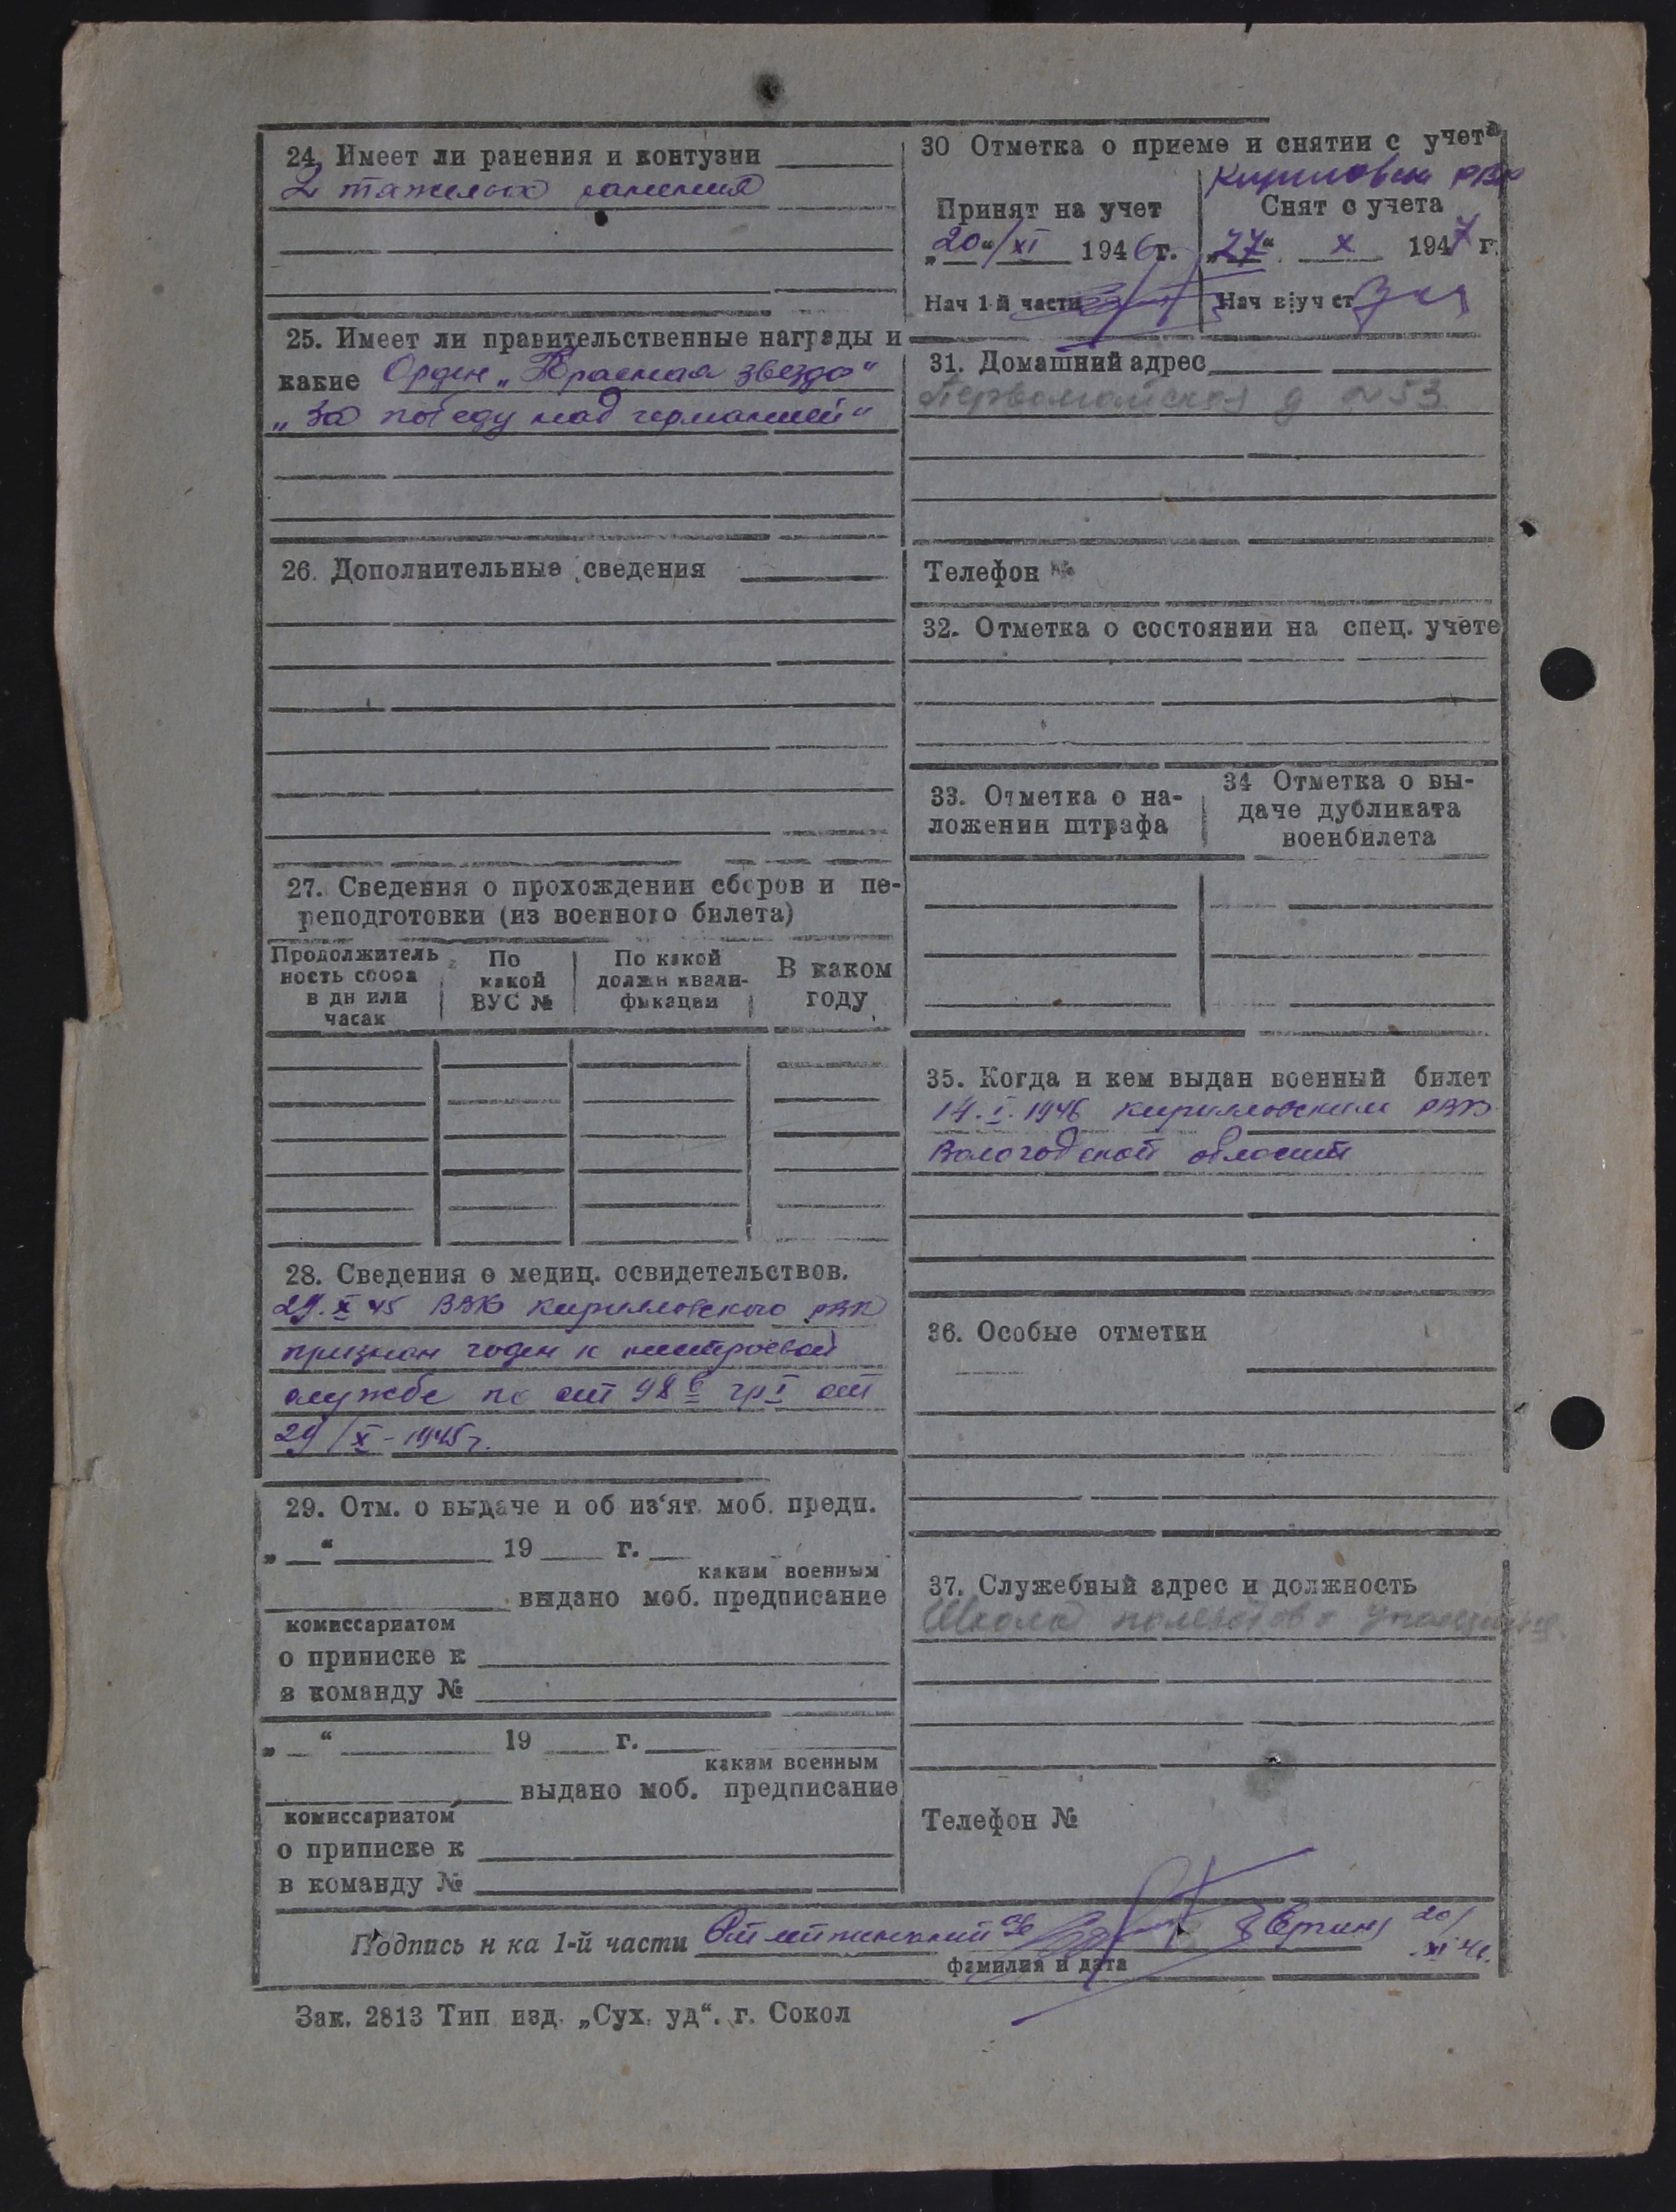 24. Имеет ли ранения и контузии
2 тяжелых ранения
25. Имеет ли правительственные награды и
какие Орден „Красная звезда“
„За победу над германией“
26. Дополнительные сведения
27. Сведения о прохождении сборов и пе-
реподготовки (из военного билета)
Продолжитель
ность сбора
в дн или
часах
По
какой
ВУС №
По какой
должн квали-
фикации
В каком
году
28. Сведения о медиц. освидетельствов.
29. X 45 ВВК Кирилловского РВК
признан годен к нестроевой
службе по ст 98 гр I от
29/X-1945 г.
29. Отм. о выдаче и об из'ят. моб. предп.
„ “ 19 г.
каким военным
выдано моб. предписание
комиссариатом
о приписке к
в команду №
„ “ 19 г.
каким военным
выдано моб. предписание
комиссариатом
о приписке к
в команду №
30 Отметка о приеме и снятии с учета
РВК
Принят на учет
„20“/XI 1946 г.
Нач 1-й части
Снят с учета
„27“ X 1947 г.
Нач в/уч ст
31. Домашний адрес
Первомайская д №53
Телефон №
32. Отметка о состоянии на спец. учете
33. Отметка о на-
ложении штрафа
34 Отметка о вы-
даче дубликата
военбилета
35. Когда и кем выдан военный билет
14.I.1946 Кирилловским РВК
Вологодской области
36. Особые отметки
37. Служебный адрес и должность
Школа
Телефон №
Подпись н ка 1-й части 20/XI 46
фамилия и дата
Зак. 2813 Тип изд. „Сух. уд“. г. Сокол